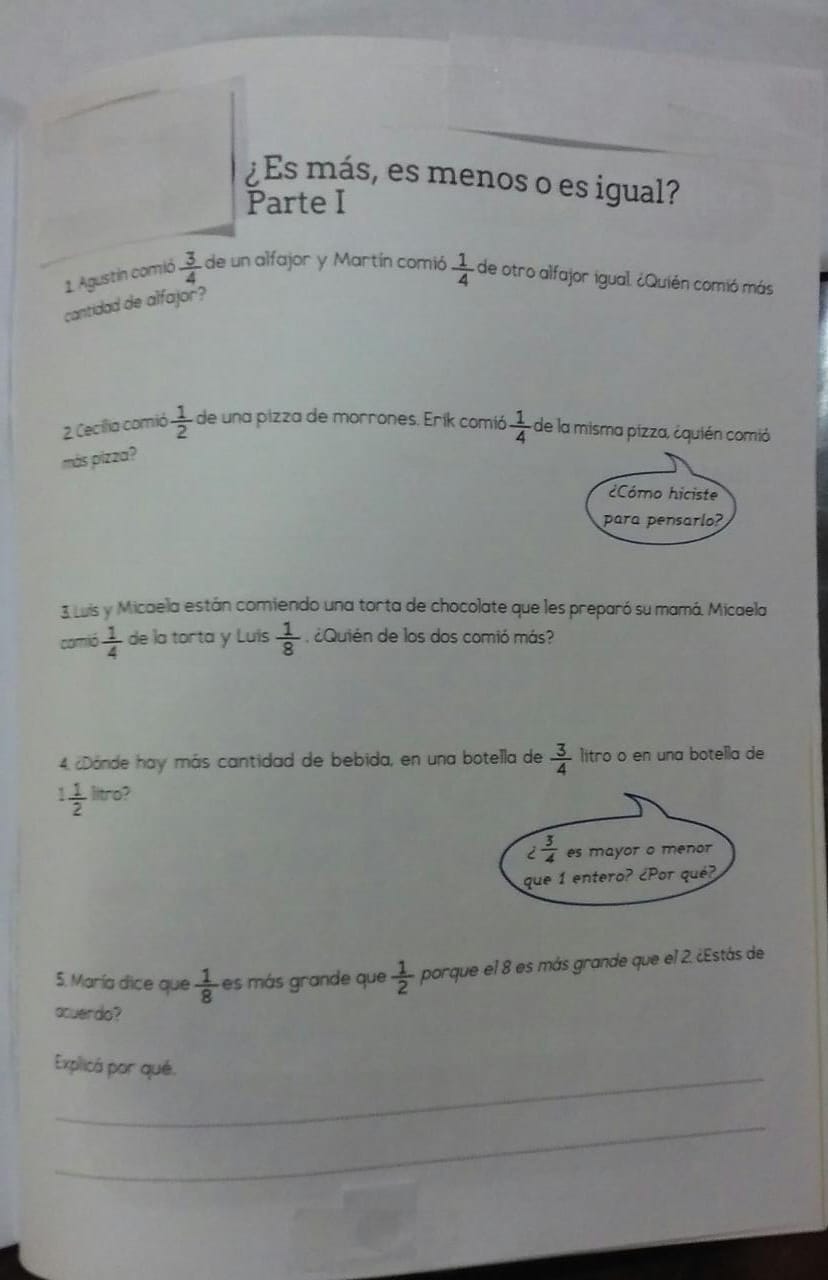 ¿Es más, es menos o es igual?
Parte I
1. Agustín comió 3/4 de un alfajor y Martín comió 1/4 de otro alfajor igual. ¿Quién comió más
cantidad de alfajor?
2. Cecilia comió 1/2 de una pizza de morrones. Erik comió 1/4 de la misma pizza, ¿quién comió
más pizza?
¿Cómo hiciste
para pensarlo?
3. Luis y Micaela están comiendo una torta de chocolate que les preparó su mamá. Micaela
comió 1/4 de la torta y Luis 1/8. ¿Quién de los dos comió más?
4. ¿Dónde hay más cantidad de bebida, en una botella de 3/4 litro o en una botella de
1 1/2 litro?
¿3/4 es mayor o menor
que 1 entero? ¿Por qué?
5. María dice que 1/8 es más grande que 1/2 porque el 8 es más grande que el 2. ¿Estás de
acuerdo?
Explicá por qué.